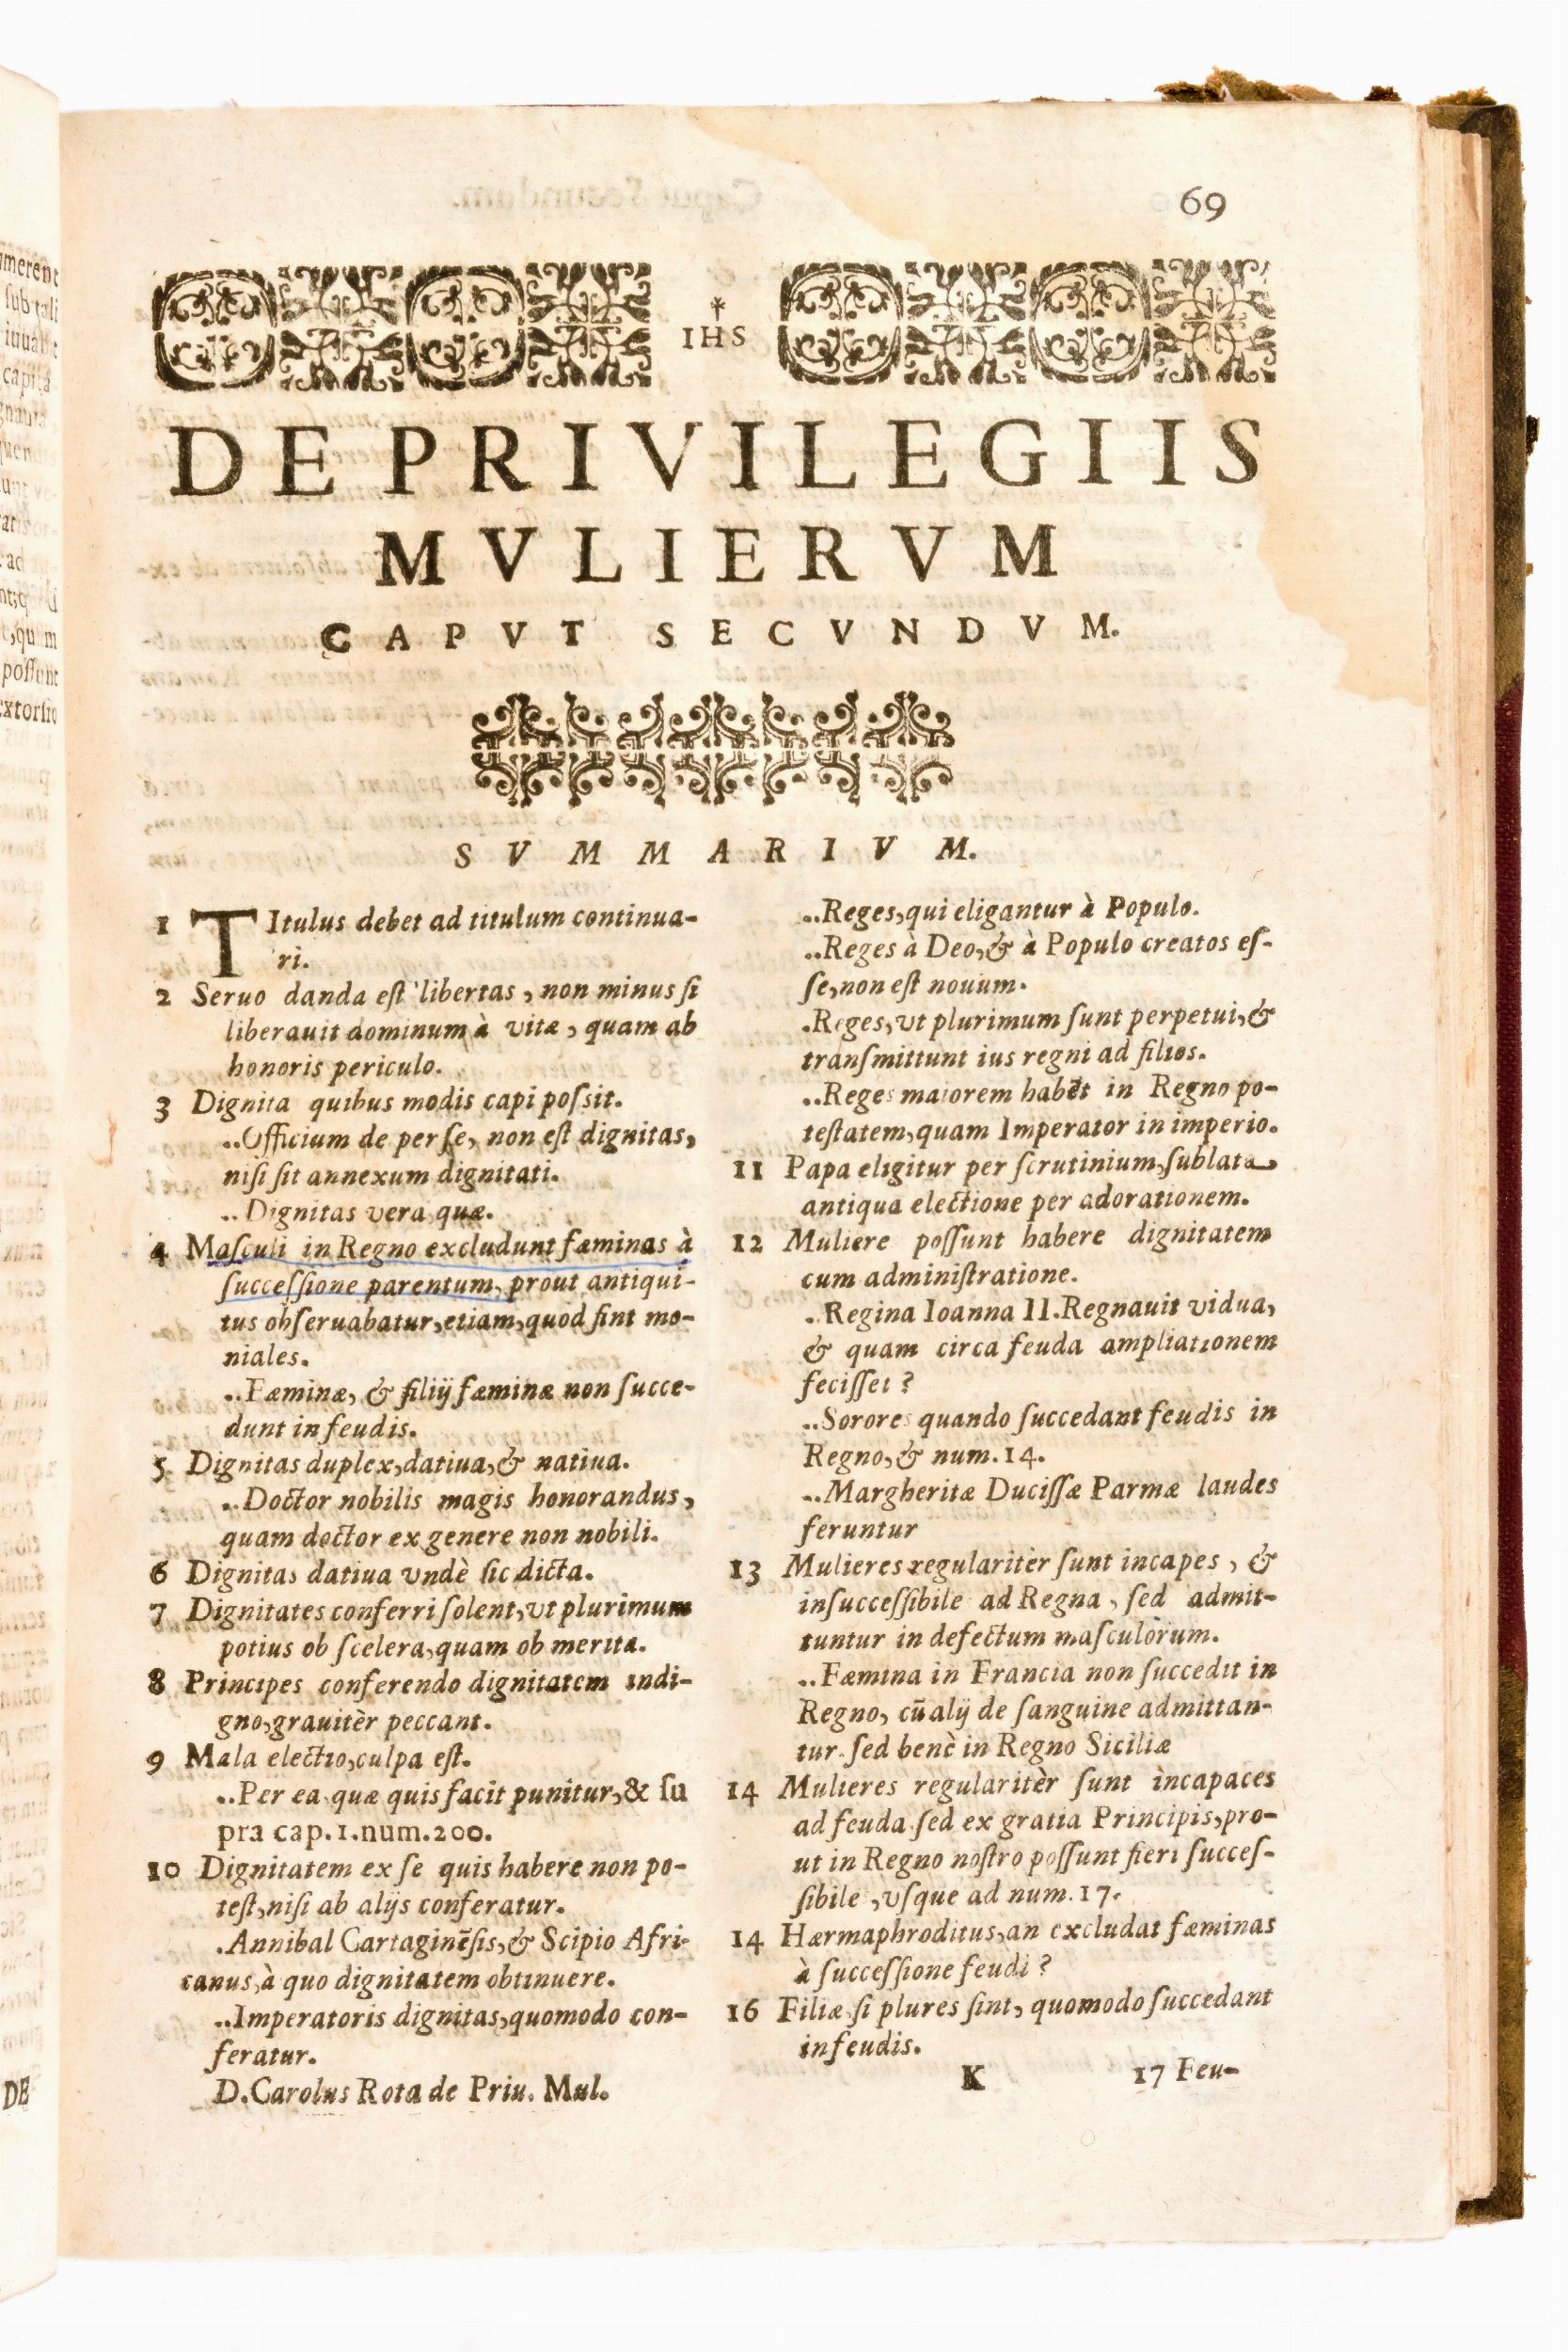 imerent
sub tali
capita
,quam
possunt
extorsio
DE
69
IHS
DE PRIVILEGIIS
MVLIERVM
CAPVT SECVNDVM.
SVMMARIVM.
1 TItulus debet ad titulum continua-
ri.
2 Seruo danda eſt libertas, non minus ſi
liberauit dominum à vitæ, quam ab
honoris periculo.
3 Dignita quibus modis capi poſsit.
..Officium de per ſe, non eſt dignitas,
niſi ſit annexum dignitati.
..Dignitas vera quæ.
4 Maſculi in Regno excludunt fæminas à
ſucceſſione parentum, prout antiqui-
tus obſeruabatur,etiam,quod ſint mo-
niales.
..Fæminæ, & filiÿ fæminæ non ſucce-
dunt in feudis.
5 Dignitas duplex,datiua,& natiua.
..Doctor nobilis magis honorandus,
quam doctor ex genere non nobili.
6 Dignitas datiua vndè ſic dicta.
7 Dignitates conferri ſolent,vt plurimum
potius ob ſcelera,quam ob merita.
8 Principes conferendo dignitatem indi-
gno,grauitèr peccant.
9 Mala electio,culpa eſt.
..Per ea quæ quis facit punitur,& ſu
pra cap.1.num.200.
10 Dignitatem ex ſe quis habere non po-
teſt,niſi ab alijs conferatur.
.Annibal Cartaginẽſis,& Scipio Afri-
canus,à quo dignitatem obtinuere.
..Imperatoris dignitas,quomodo con-
feratur.
D.Carolus Rota de Priu. Mul.
..Reges,qui eligantur à Populo.
..Reges à Deo,& à Populo creatos eſ-
ſe,non eſt nouum.
.Reges,vt plurimum ſunt perpetui,&
tranſmittunt ius regni ad filios.
..Reges maiorem habẽt in Regno po-
teſtatem,quam Imperator in imperio.
11 Papa eligitur per ſcrutinium,ſublata
antiqua electione per adorationem.
12 Muliere poſſunt habere dignitatem
cum adminiſtratione.
..Regina Ioanna II.Regnauit vidua,
& quam circa feuda ampliationem
feciſſet ?
..Sorores quando ſuccedant feudis in
Regno,& num.14.
..Margheritæ Duciſſæ Parmæ laudes
feruntur
13 Mulieres regularitèr ſunt incapes, &
inſucceſſibile ad Regna, ſed admit-
tuntur in defectum maſculòrum.
..Fæmina in Francia non ſuccedit in
Regno, cũ alij de ſanguine admittan-
tur.ſed benè in Regno Siciliæ
14 Mulieres regularitèr ſunt incapaces
ad feuda.ſed ex gratia Principis,pro-
ut in Regno noſtro poſſunt fieri ſucceſ-
ſibile ,vſque ad num.17.
14 Hærmaphroditus,an excludat fæminas
à ſucceſſione feudi ?
16 Filiæ ſi plures ſint, quomodo ſuccedant
in feudis.
K 17 Feu-